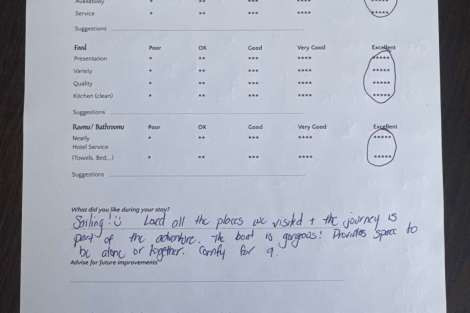 Availability * ** *** **** *****
Service * ** *** **** *****
Suggestions
Food Poor OK Good Very Good Excellent
Presentation * ** *** **** *****
Variety * ** *** **** *****
Quality * ** *** **** *****
Kitchen (clean) * ** *** **** *****
Suggestions
Rooms/ Bathrooms Poor OK Good Very Good Excellent
* ** *** **** *****
Hotel Service
(Towels, Bed,...) * ** *** **** *****
Suggestions
What did you like during your stay?
Sailing! :) Loved all the places we visited + the journey is
part of the adventure. The boat is gorgeous! Provides space to
be alone or together. Comfy for 9.
Advise for future improvements